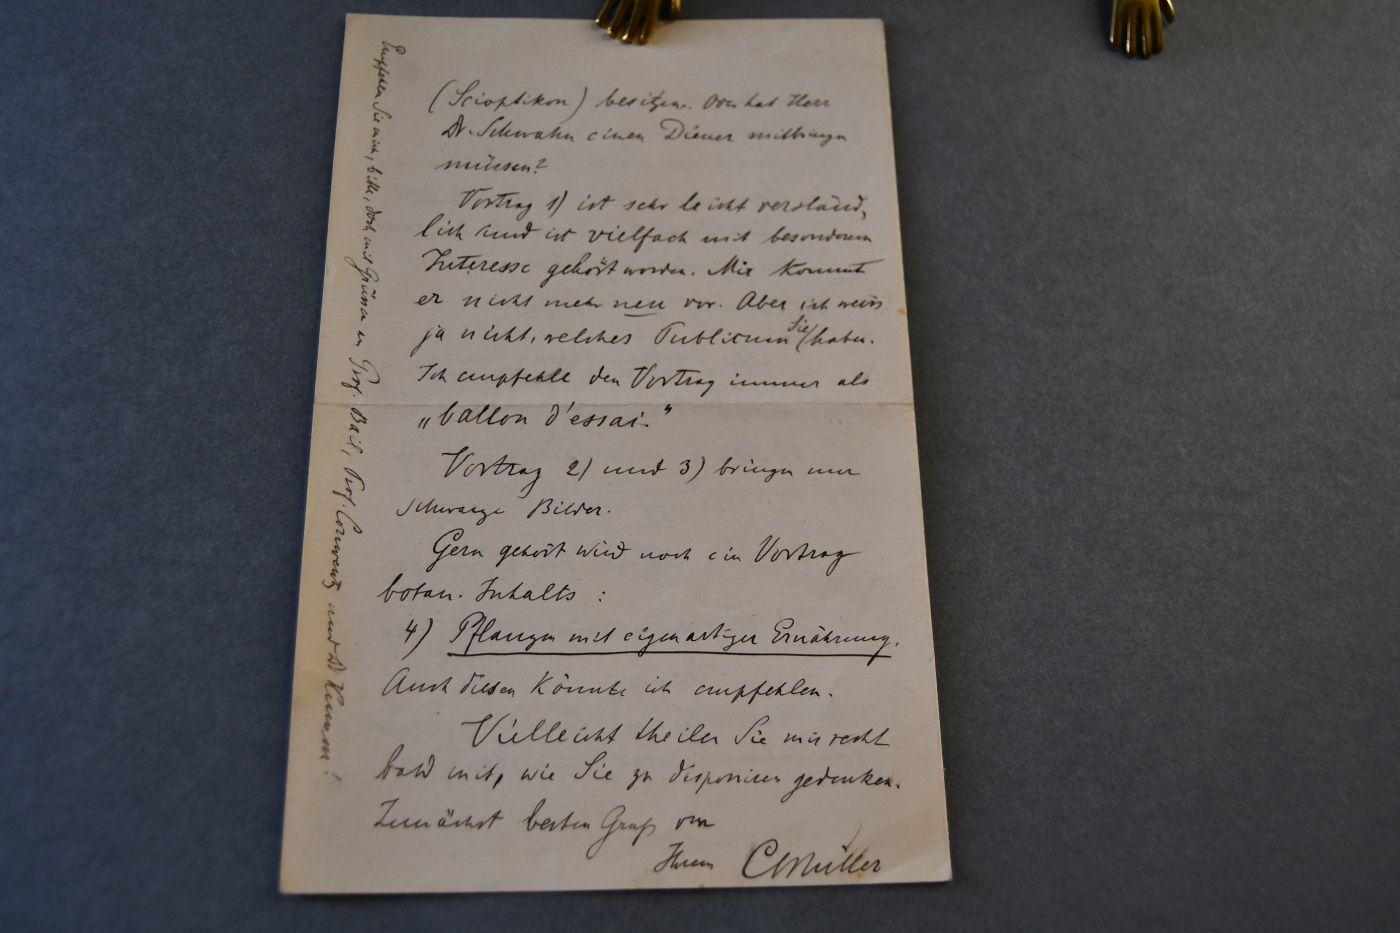 (Scioptikon) besitzen. Oder hat Herr
Dr. Schwahn einen Diener mitbringen
müssen?
Vortrag 1) ist sehr leicht verständ,
lich und ist vielfach mit besonderem
Interesse gehört worden. Mir kommt
er nicht mehr neu vor. Aber ich weiss
ja nicht, welches Publicum Sie haben.
Ich empfehle den Vortrag immer als
„ballon d'essai."
Vortrag 2) und 3) bringen nur
schwarze Bilder.
Gern gehört wird noch ein Vortrag
botan. Inhalts :
4) Pflanzen mit eigenartiger Ernährung.
Auch diesen könnte ich empfehlen.
Vielleicht theilen Sie mir recht
bald mit, wie Sie zu disponiren gedenken.
Zunächst besten Gruß von
Ihrem CMüller
Empfehlen Sie mich, bitte, doch mit Grüssen an Prof. Bail, Prof. Conwentz und Dr Kumm!